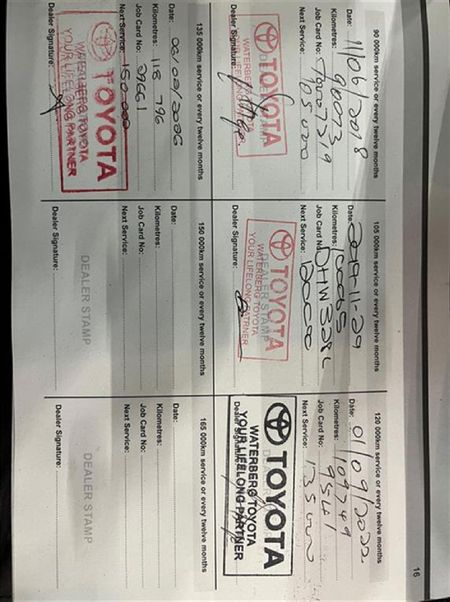 16
90 000km service or every twelve months
Date: 11/06/2018
Kilometres: 90073
Job Card No:
Next Service: 105 000
Dealer Signature:
TOYOTA
WATERBERG TOYOTA
YOUR LIFELONG PARTNER
105 000km service or every twelve months
Date: 2019-11-29
Kilometres:
Job Card No:
Next Service: 120000
Dealer Signature:
DEALER STAMP
TOYOTA
WATERBERG TOYOTA
YOUR LIFELONG PARTNER
120 000km service or every twelve months
Date: 01/09/2022
Kilometres: 109749
Job Card No:
Next Service: 135 000
Dealer Signature:
TOYOTA
WATERBERG TOYOTA
YOUR LIFELONG PARTNER
135 000km service or every twelve months
Date:
Kilometres: 118 796
Job Card No:
Next Service: 150 000
Dealer Signature:
TOYOTA
WATERBERG TOYOTA
YOUR LIFELONG PARTNER
150 000km service or every twelve months
Date:
Kilometres:
Job Card No:
Next Service:
Dealer Signature:
DEALER STAMP
165 000km service or every twelve months
Date:
Kilometres:
Job Card No:
Next Service:
Dealer Signature:
DEALER STAMP